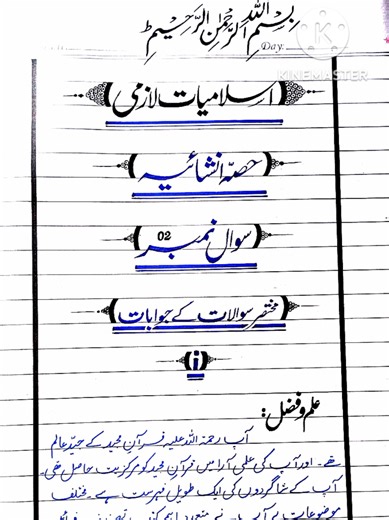 بِسْمِ اللّٰہِ الرَّحْمٰنِ الرَّحِیْمِ
Day:
KINEMASTER
اسلامیات لازمی
حصہ انشائیہ
سوال نمبر 02
مختصر سوالات کے جوابات
(i)
علم و فضل:
آپ رحمۃ اللہ علیہ قرآن مجید کے جیّد عالم
تھے۔ اور آپ کی علمی آرا میں قرآن مجید کو مرکزیت حاصل تھی۔
آپ کے شاگردوں کی ایک طویل فہرست ہے۔ مختلف
موضوعات پر آپ نے متعدد اہم کتابیں